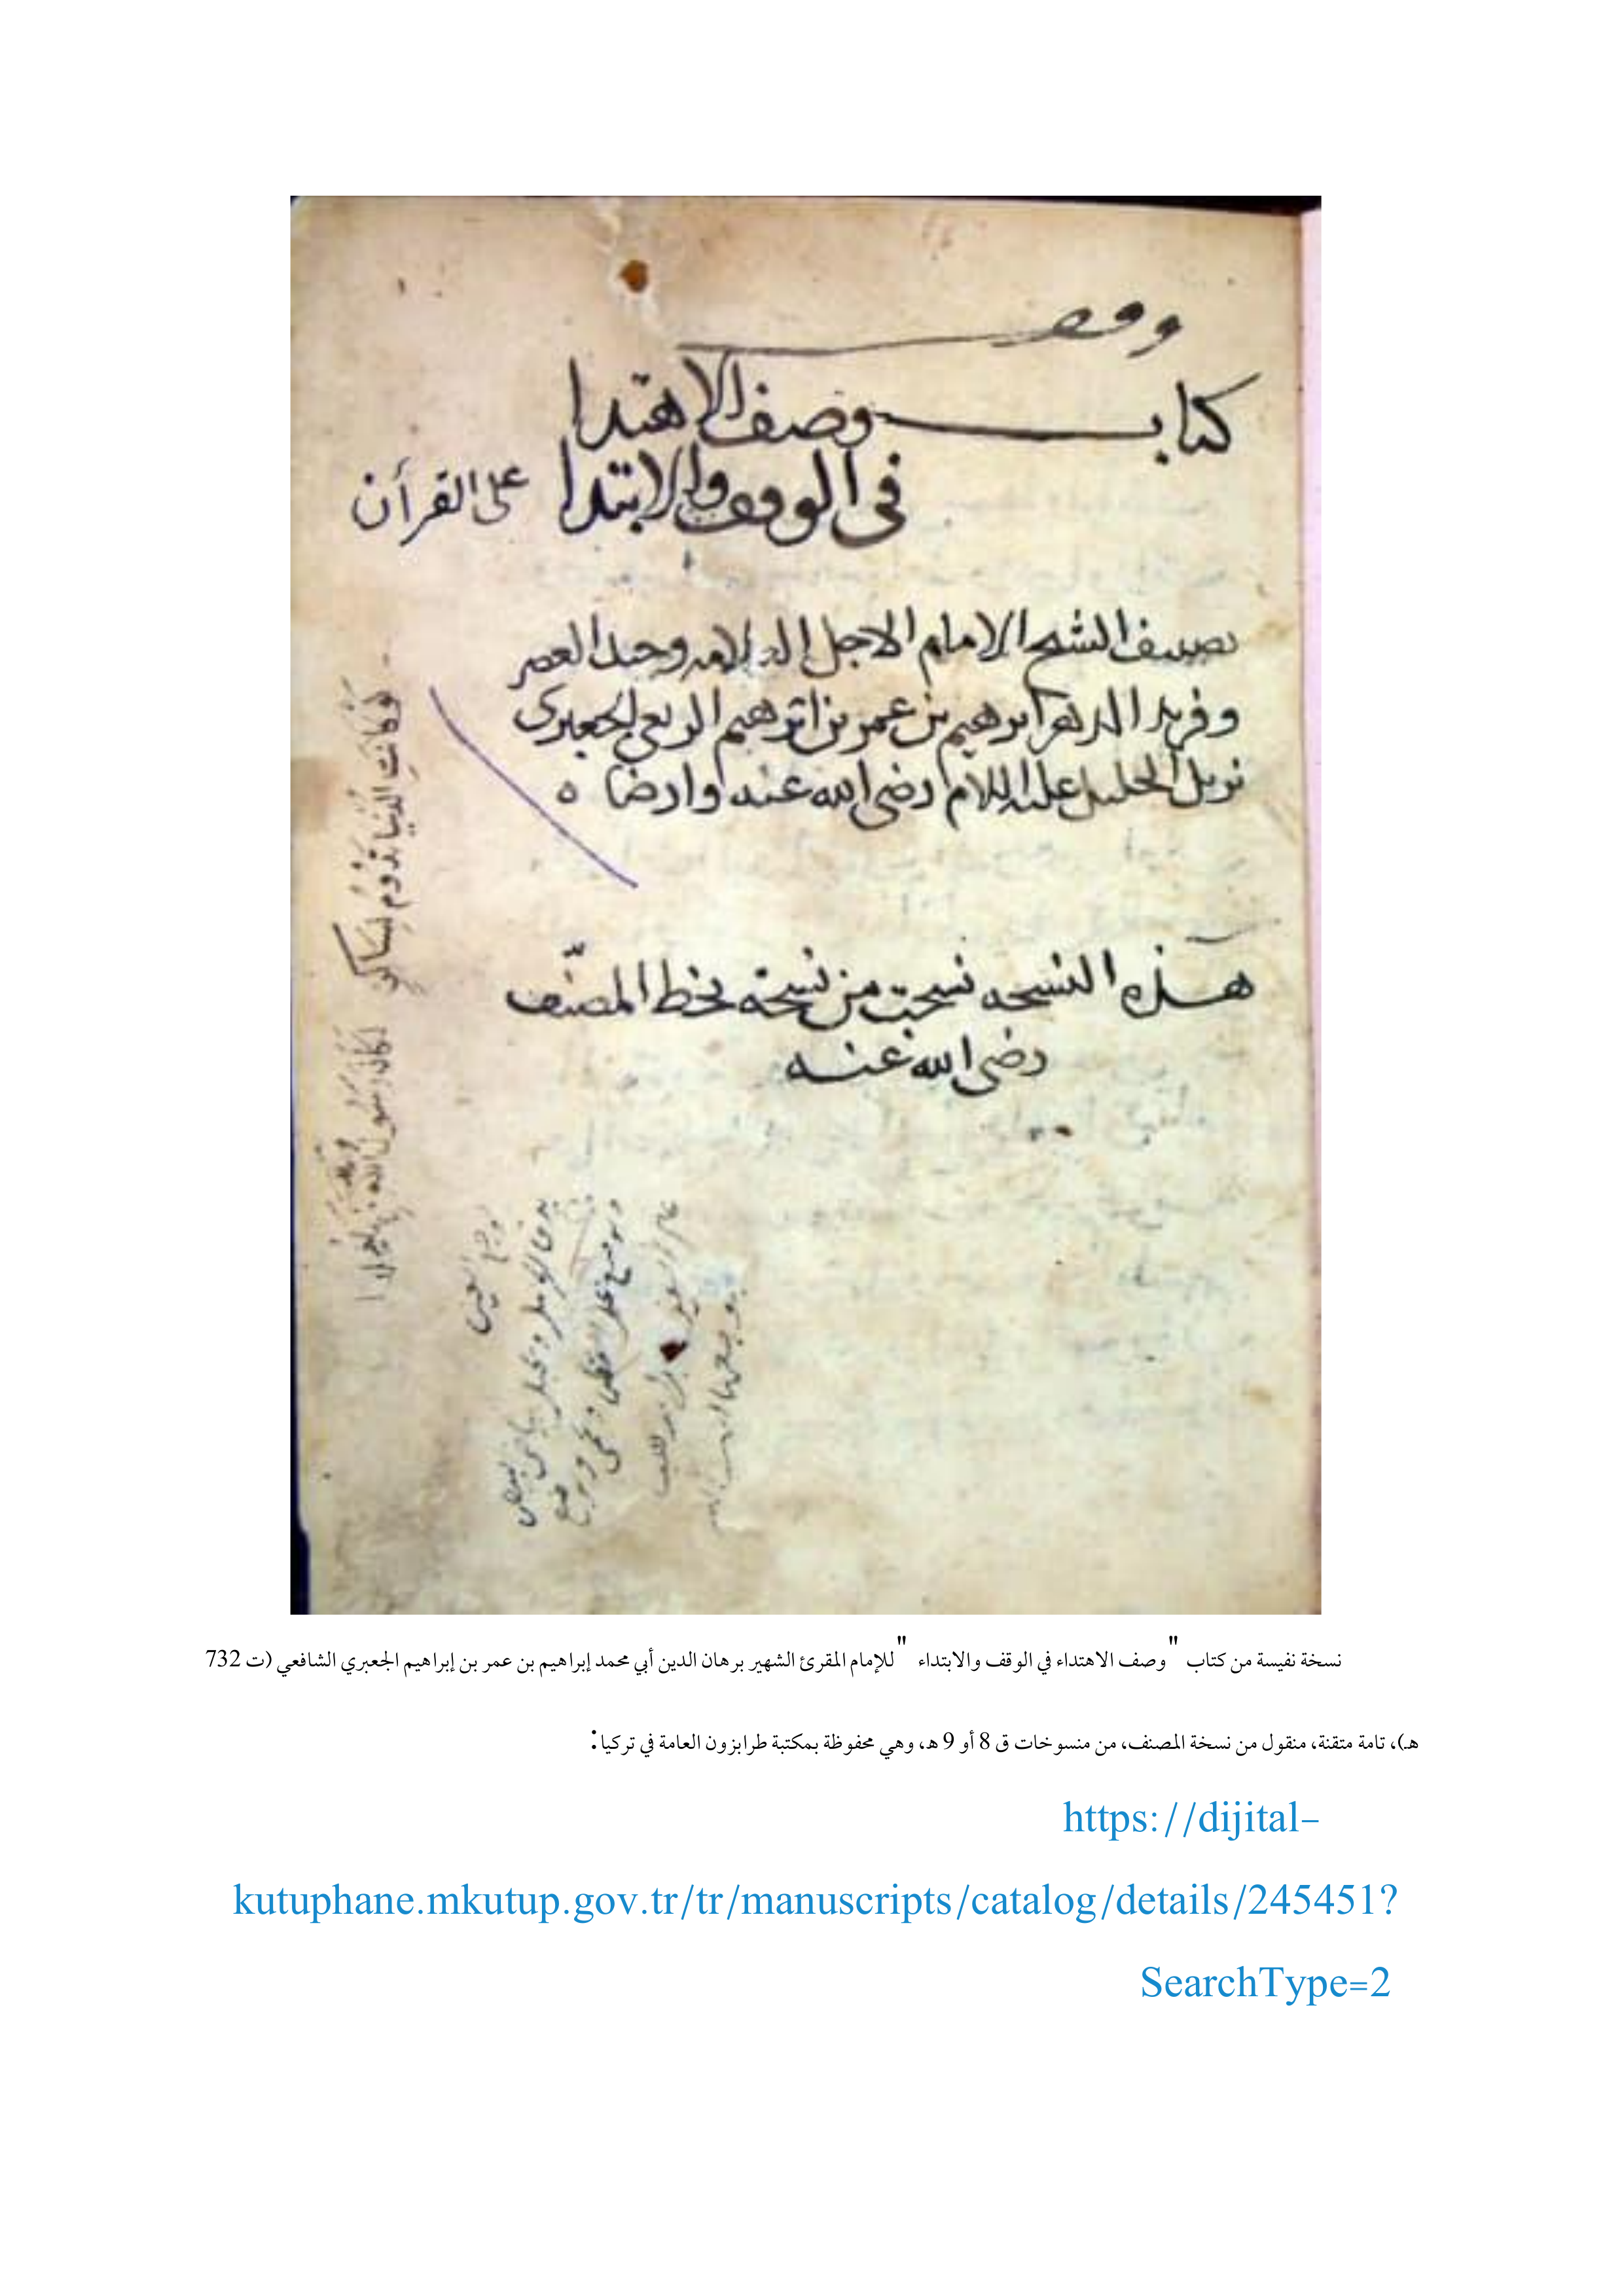 وقف
كتاب وصف الاهتدا
فى الوقف والابتدا على القرآن
تصنيف الشيخ الامام الاجل العلامه وحيد العصر
وفريد الدهر ابرهيم بن عمر بن ابرهيم الربعى الجعبرى
نزيل الخليل عليه السلام رضى الله عنه وارضاه
هذه النسخه نسخت من نسخة بخط المصنّف
رضى الله عنه
لو كانت الدنيا تدوم لساكن
لكان رسول الله
نسخة نفيسة من كتاب "وصف الاهتداء في الوقف والابتداء" للإمام المقرئ الشهير برهان الدين أبي محمد إبراهيم بن عمر بن إبراهيم الجعبري الشافعي (ت 732
هـ)، تامة متقنة، منقول من نسخة المصنف، من منسوخات ق 8 أو 9 هـ، وهي محفوظة بمكتبة طرابزون العامة في تركيا:
https://dijital-
kutuphane.mkutup.gov.tr/tr/manuscripts/catalog/details/245451?
SearchType=2